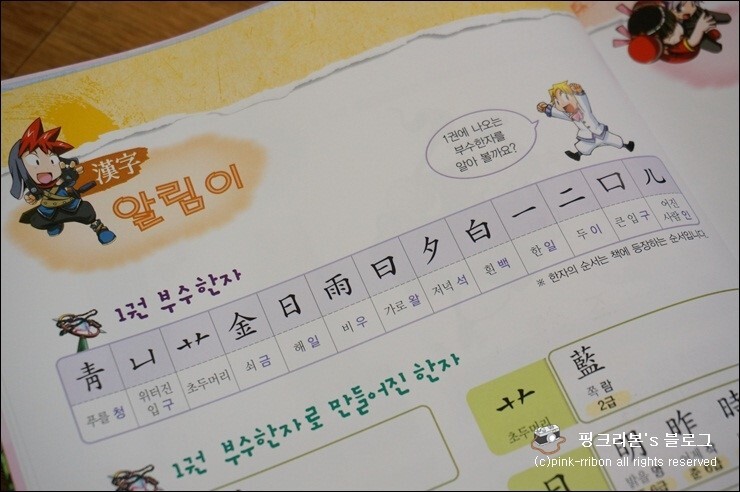 漢字
알림이
1권에 나오는
부수한자를
알아 볼까요?
1권 부수한자
靑 凵 艹 金 日 雨 曰 夕 白 一 二 囗 儿
푸를 청 위터진 입 구 초두머리 쇠 금 해 일 비 우 가로 왈 저녁 석 흰 백 한 일 두 이 큰입 구 어진 사람 인
※ 한자의 순서는 책에 등장하는 순서입니다.
1권 부수한자로 만들어진 한자
艹
초두머리
藍
쪽 람
2급
日
明 昨 時
밝을 명
핑크리본's 블로그
(c)pink-rribon all rights reserved